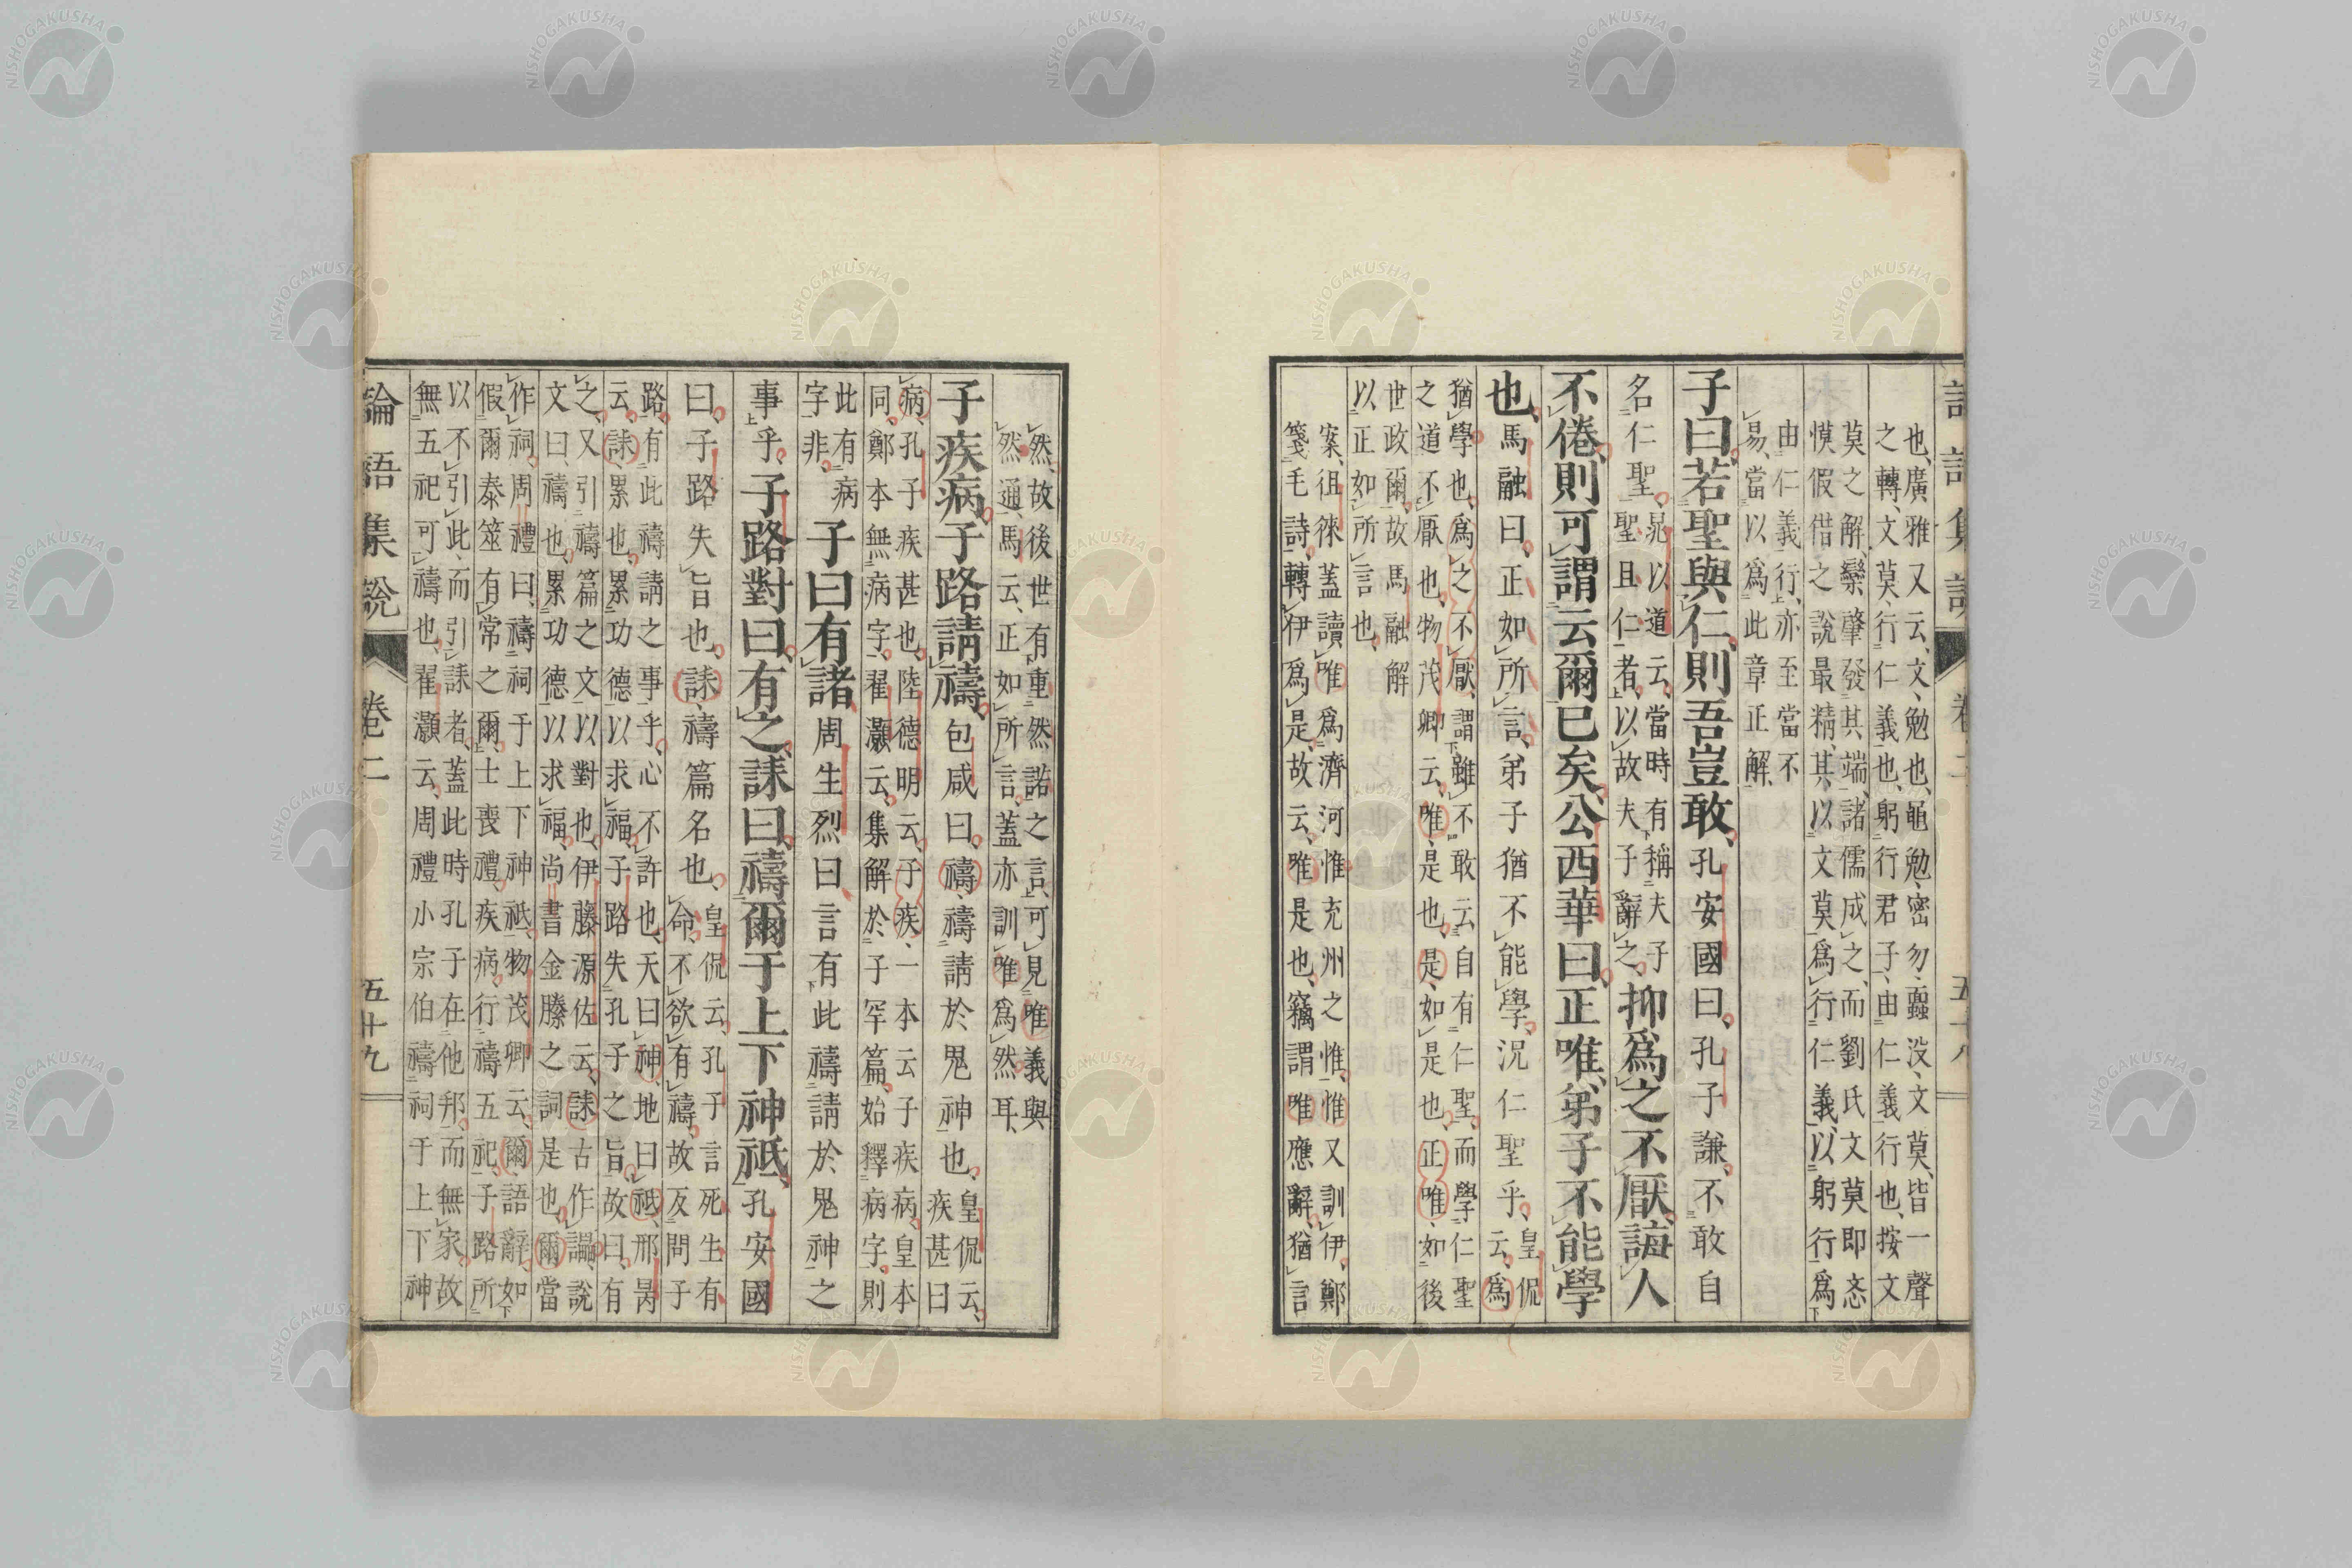 也、廣雅又云、文、勉也、黽勉、密勿、蠠沒、文莫、皆一聲
之轉、文莫、行仁義也、躬行君子、由仁義行也、按文
莫之解、欒肇發其端、諸儒成之、而劉氏文莫即忞
慔假借之說最精、其以文莫爲行仁義、以躬行爲
由仁義行、亦至當不
易、當以爲此章正解、
子曰、若聖與仁、則吾豈敢、孔安國曰、孔子謙、不敢自
名仁聖、晁以道云、當時有稱夫子
聖且仁者、以故夫子辭之、抑爲之不厭、誨人
不倦、則可謂云爾已矣、公西華曰、正唯、弟子不能學
也、馬融曰、正如所言、弟子猶不能學、況仁聖乎、皇侃
云、爲
猶學也、爲之不厭、謂雖不敢云自有仁聖、而學仁聖
之道不厭也、物茂卿云、唯、是也、是、如是也、正唯、如後
世政爾、故馬融解
以正如所言也、
案、徂徠蓋讀唯爲濟河惟兗州之惟、惟又訓伊、鄭
箋毛詩、轉伊爲是、故云、唯是也、竊謂唯應辭、猶言
然、故後世有重然諾之言、可見唯義與
然通、馬云、正如所言、蓋亦訓唯爲然耳、
子疾病、子路請禱、包咸曰、禱、禱請於鬼神也、皇侃云、
疾甚曰
病、孔子疾甚也、陸德明云、子疾、一本云子疾病、皇本
同、鄭本無病字、翟灝云、集解於子罕篇、始釋病字、則
此有病
字非、子曰、有諸、周生烈曰、言有此禱請於鬼神之
事乎、子路對曰、有之、誄曰、禱爾于上下神祇、孔安國
曰、子路失旨也、誄、禱篇名也、皇侃云、孔子言死生有
命、不欲有禱、故反問子
路、有此禱請之事乎、心不許也、天曰神、地曰祇、邢昺
云、誄、累也、累功德以求福、子路失孔子之旨、故曰、有
之、又引禱篇之文以對也、伊藤源佐云、誄古作讄、說
文曰、禱也、累功德以求福、尚書金縢之詞是也、爾當
作祠、周禮曰、禱祠于上下神祇、物茂卿云、爾、語辭、如
假爾泰筮有常之爾、士喪禮、疾病、行禱五祀、子路所
以不引此、而引誄者、蓋此時孔子在他邦、而無家、故
無五祀可禱也、翟灝云、周禮小宗伯禱祠于上下神
論語集說 卷二 五十九
NISHOGAKUSHA